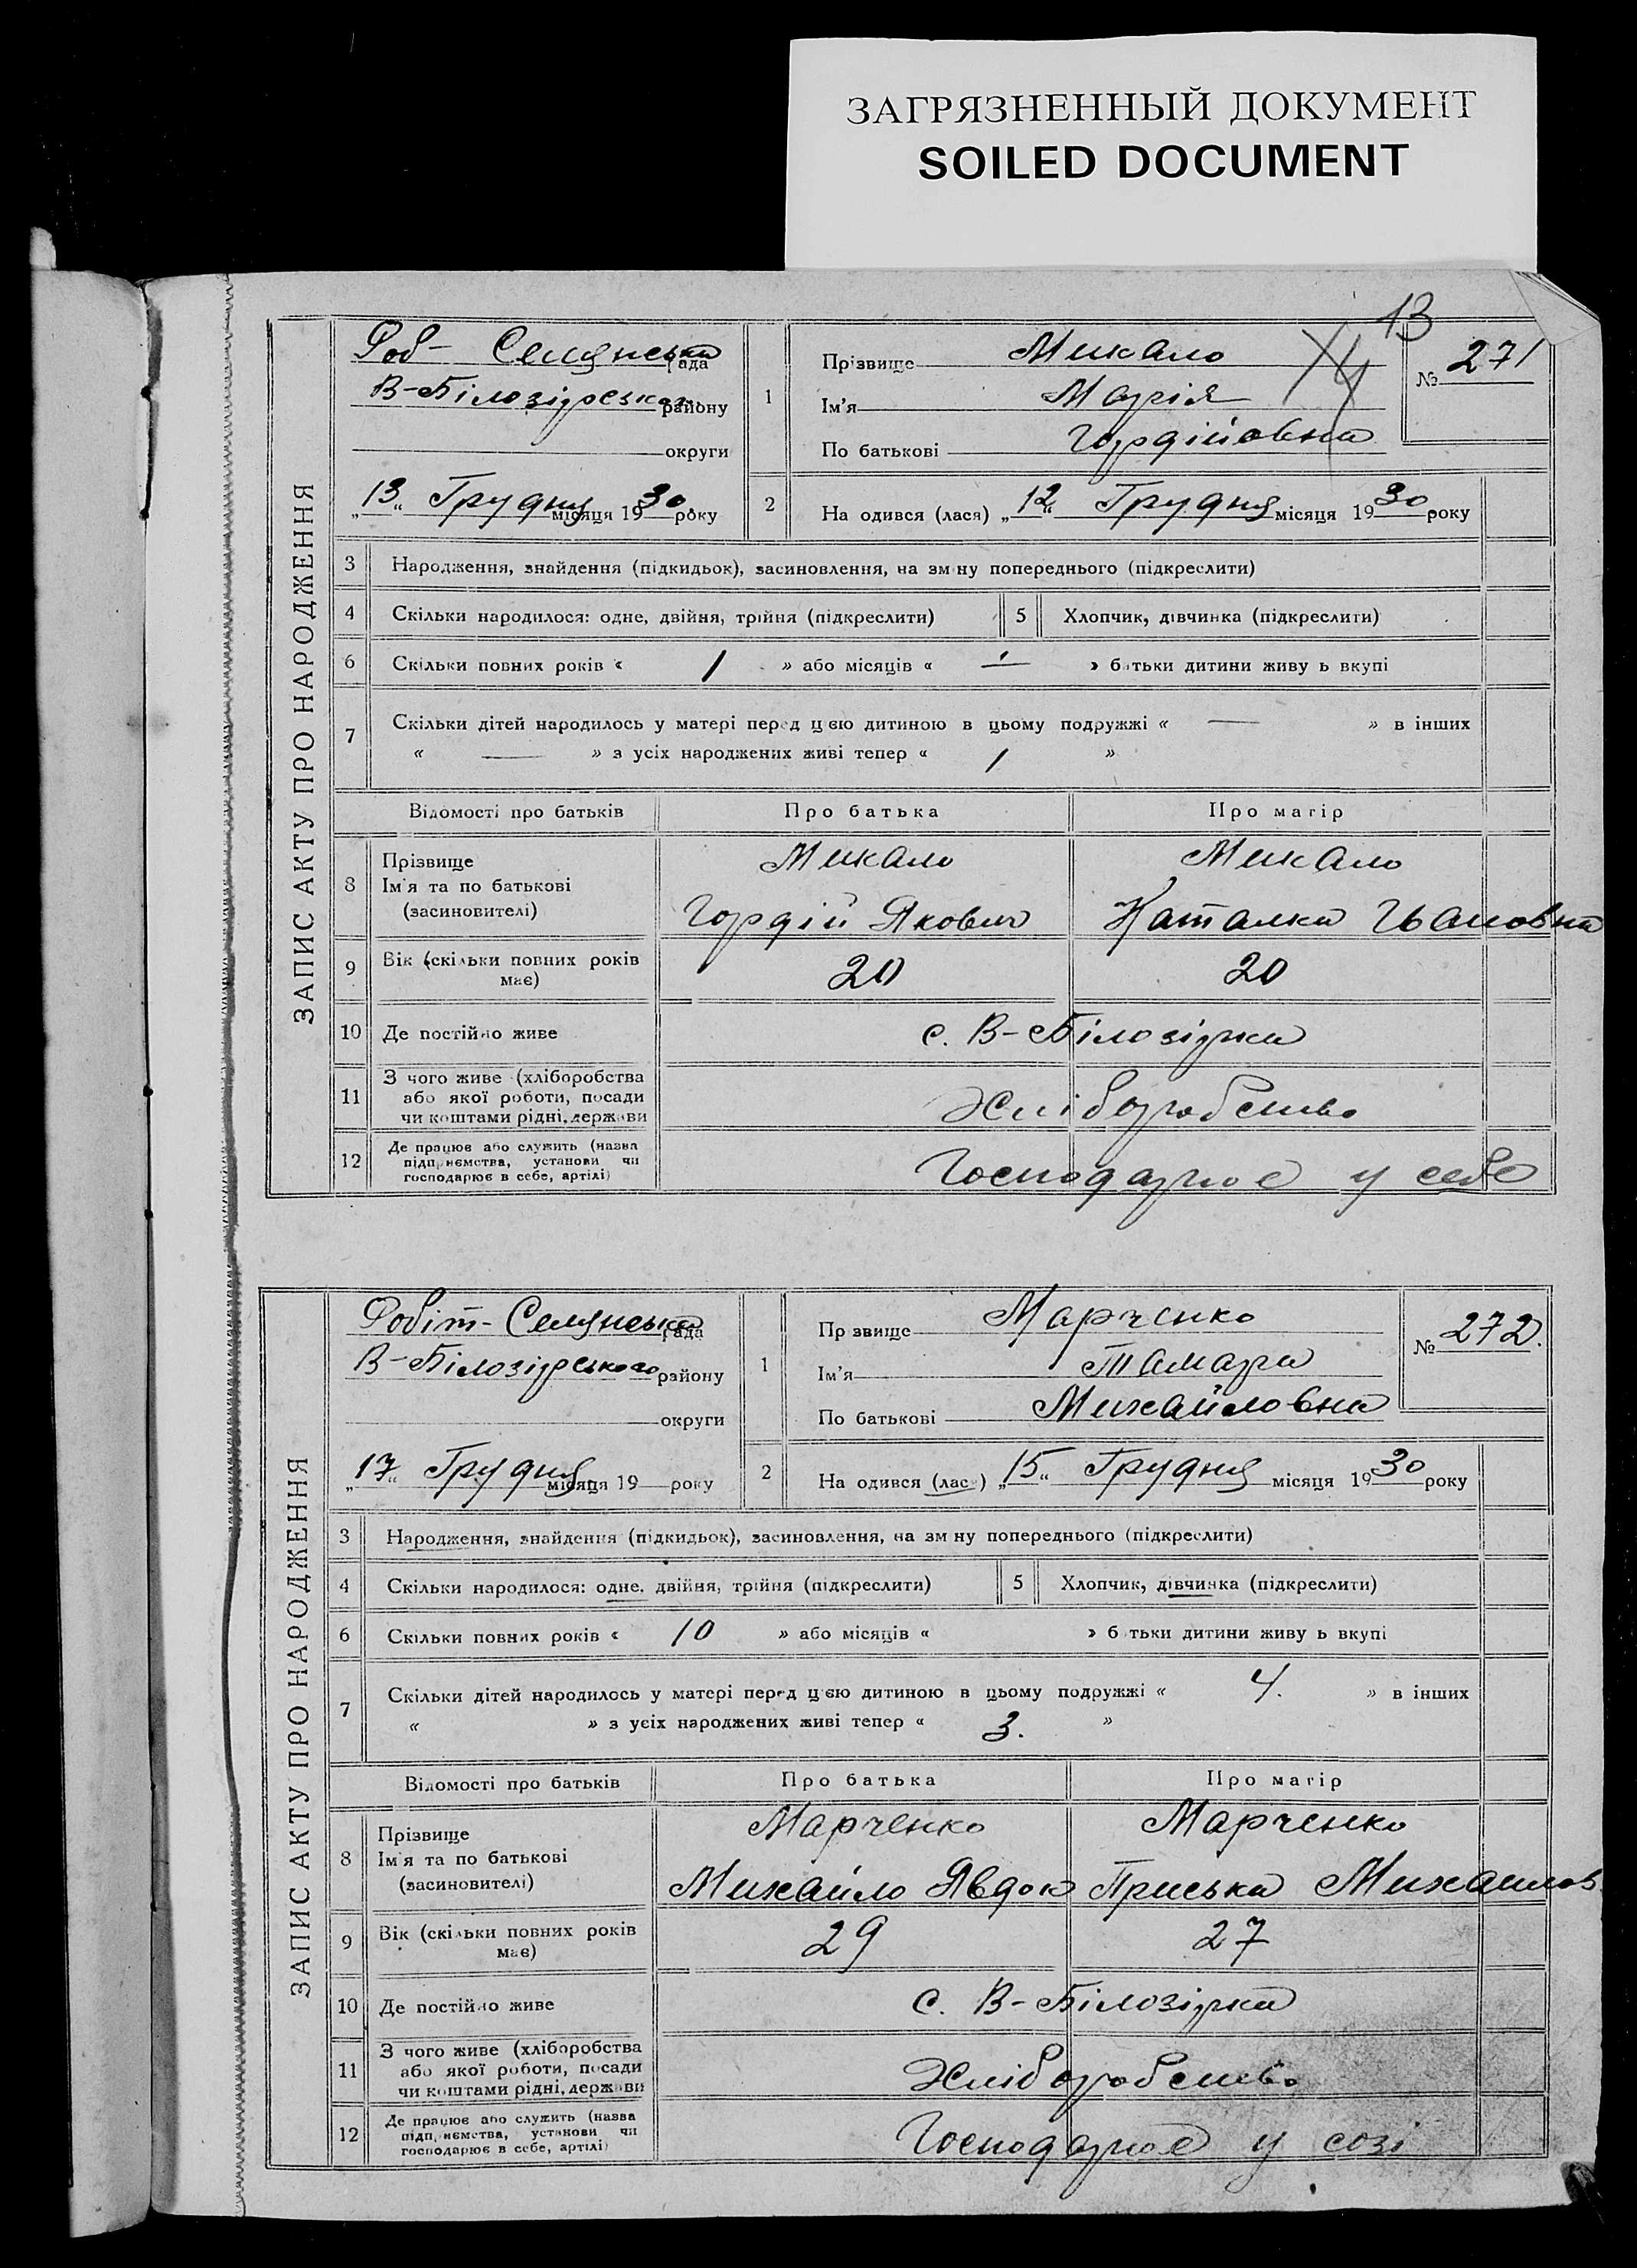 ЗАГРЯЗНЕННЫЙ ДОКУМЕНТ
SOILED DOCUMENT
13
14
ЗАПИС АКТУ ПРО НАРОДЖЕННЯ
Роб- Селянська рада
В-Білозірського району
округи
„13“ Грудня місяця 1930 року
1
Прізвище Микало
Ім'я Марія
По батькові Гордійовна
№ 271
2
На одився (лася) „12“ Грудня місяця 1930 року
3 Народження, знайдення (підкидьок), засиновлення, на зм ну попереднього (підкреслити)
4 Скільки народилося: одне, двійня, трійня (підкреслити) 5 Хлопчик, дівчинка (підкреслити)
6 Скільки повних років « 1 » або місяців « — » батьки дитини живу ь вкупі
7 Скільки дітей народилось у матері перед цією дитиною в цьому подружжі « — » в інших
« — » з усіх народжених живі тепер « 1 »
Відомості про батьків Про батька Про матір
8 Прізвище Микало Микало
Ім'я та по батькові
(засиновителі) Гордій Якович Наталка Івановна
9 Вік (скільки повних років має) 20 20
10 Де постійно живе с. В-Білозірка
11 З чого живе (хліборобства
або якої роботи, посади Хліборобство
чи коштами рідні, держави
12 Де працює або служить (назва
підприємства, установи чи Господарює у себе
господарює в себе, артілі)
ЗАПИС АКТУ ПРО НАРОДЖЕННЯ
Робіт- Селянська рада
В-Білозірського району
округи
„17“ Грудня місяця 19 року
1
Пр звище Марченко
Ім'я Тамара
По батькові Михайловна
№ 272.
2
На одився (лася) „15“ Грудня місяця 1930 року
3 Народження, знайдення (підкидьок), засиновлення, на зм ну попереднього (підкреслити)
4 Скільки народилося: одне, двійня, трійня (підкреслити) 5 Хлопчик, дівчинка (підкреслити)
6 Скільки повних років « 10 » або місяців « » б тьки дитини живу ь вкупі
7 Скільки дітей народилось у матері перед цією дитиною в цьому подружжі « 4. » в інших
« » з усіх народжених живі тепер « 3. »
Відомості про батьків Про батька Про матір
8 Прізвище Марченко Марченко
Ім'я та по батькові
(засиновителі) Михайло Явдок Приська Михайлов.
9 Вік (скільки повних років має) 29 27
10 Де постійно живе с. В-Білозірка
11 З чого живе (хліборобства
або якої роботи, посади Хліборобство
чи коштами рідні, держави
12 Де працює або служить (назва
підприємства, установи чи Господарює у созі
господарює в себе, артілі)